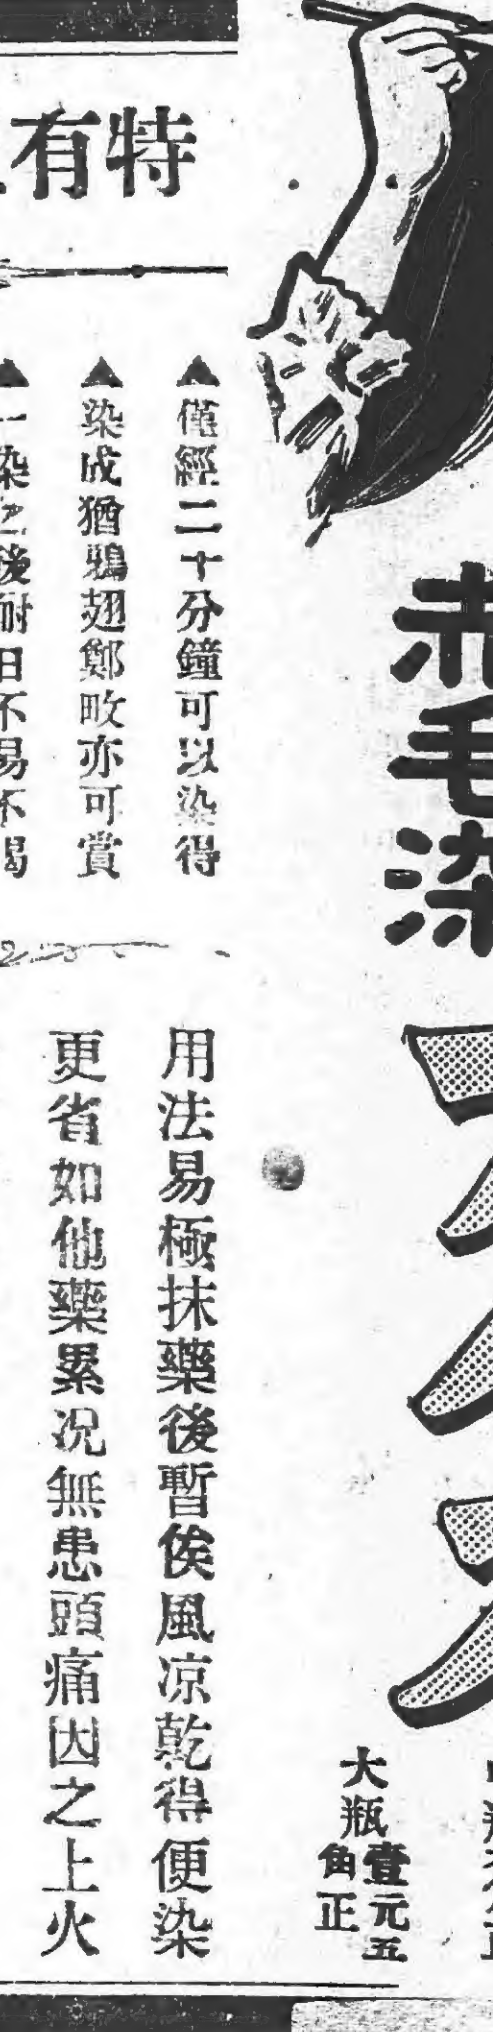 赤毛染
大瓶壹元五角正
特有
▲僅經二十分鐘可以染得
▲染成猶鴉翅鄭畋亦可賞
▲一染之後耐日不易不褐
用法易極抹藥後暫俟風凉乾得便染
更省如他藥累况無患頭痛因之上火